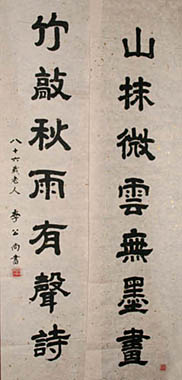 山抹微雲無墨畫
竹敲秋雨有聲詩
八十六歲老人
李公尚書